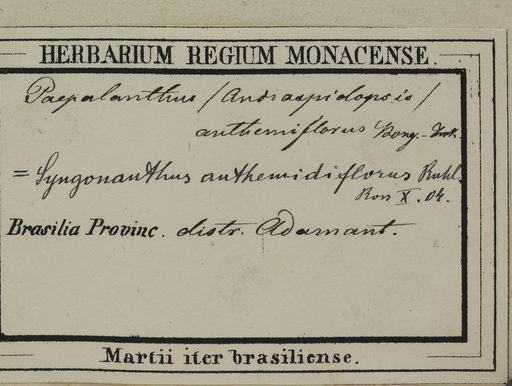 HERBARIUM REGIUM MONACENSE.
Paepalanthus /Andraspidopsis/
anthemiflorus Bong.
= Syngonanthus anthemidiflorus Ruhl.
X. 04.
Brasilia Provinc. distr. Adamant.
Martii iter brasiliense.